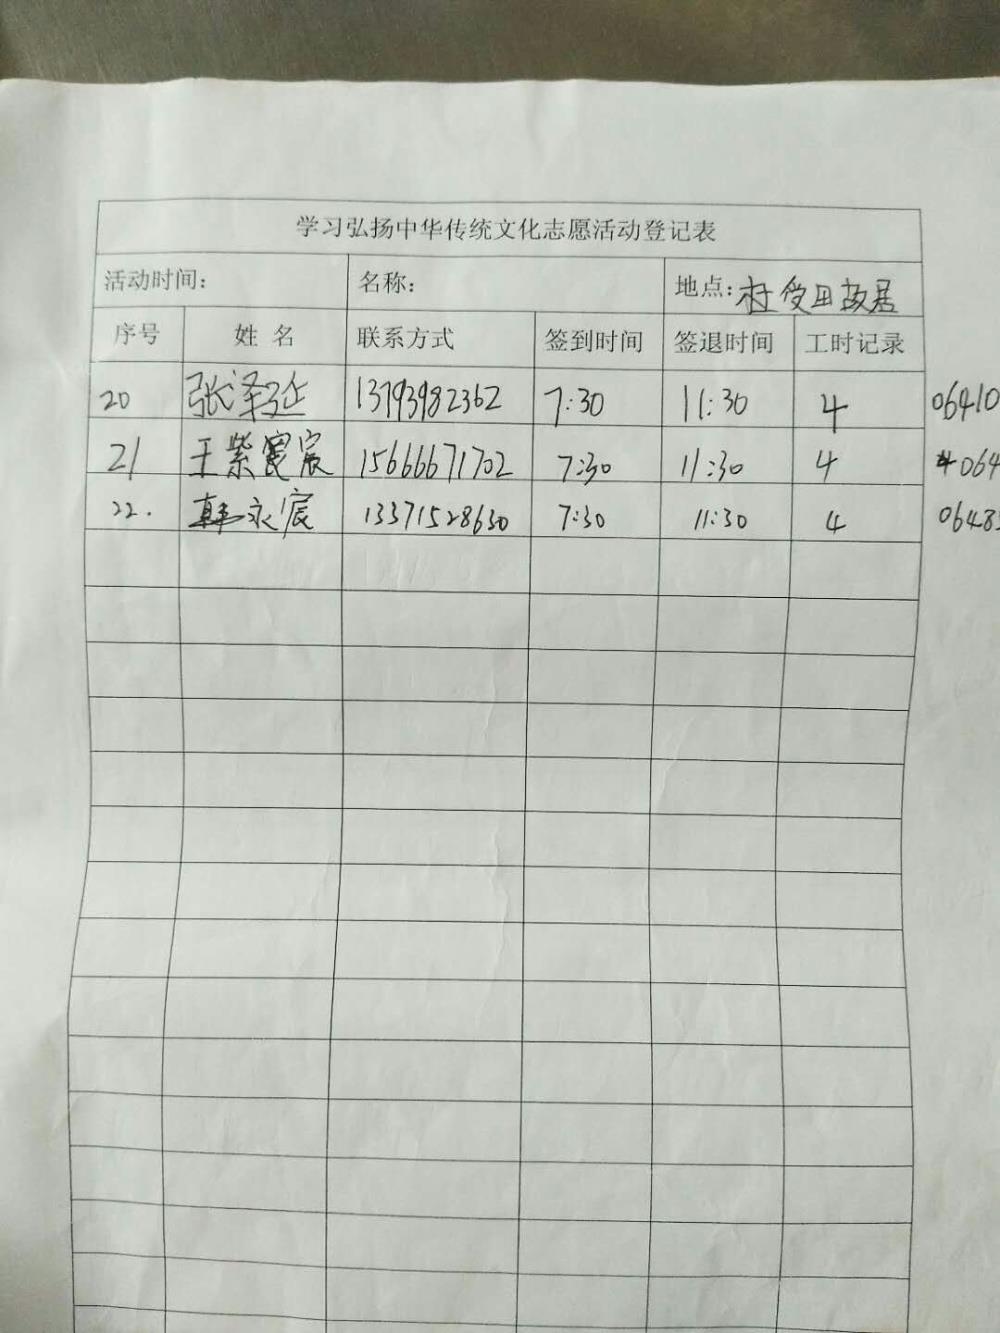 学习弘扬中华传统文化志愿活动登记表
活动时间: 名称: 地点: 杜受田故居
序号 姓 名 联系方式 签到时间 签退时间 工时记录
20 张泽延 13793982362 7:30 11:30 4 06410
21 王紫宸 15666671702 7:30 11:30 4 064
22. 韩永宸 13371528630 7:30 11:30 4 0648